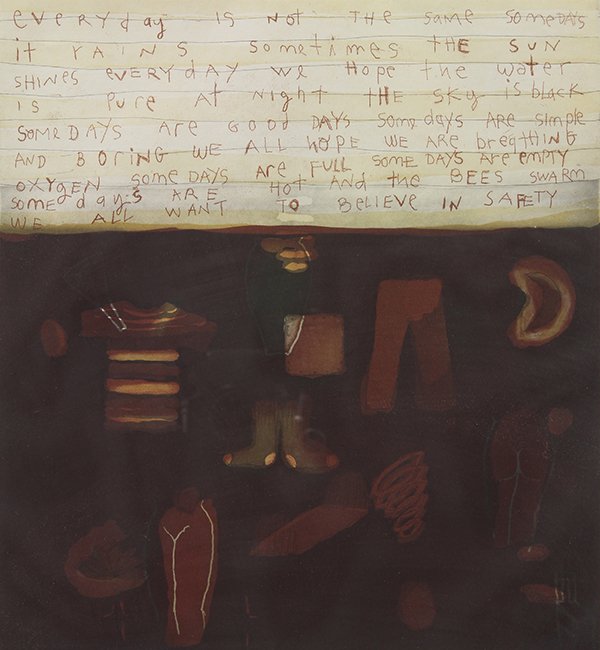 eVERYdAy IS NOT THE SAME SOMEDAYS
iT RAINS SOMeTIMES tHE SUN
SHINES eVERYDAY We HOPE the WATeR
IS PURE AT NIGHT tHE SKY iS bLACK
SOMEDAYS ARe GOOD DAYS SOMe dAYS ARE SIMPLE
AND BORING WE ALL HOPE WE ARE bREATHING
OXYGEN SOMe DAYS ARE FULL SOME DAYS ARe EMPTY
SOMe dAYS ARE HOT AND the BEES SWARM
WE ALL WANT TO BELIEVE IN SAFETY